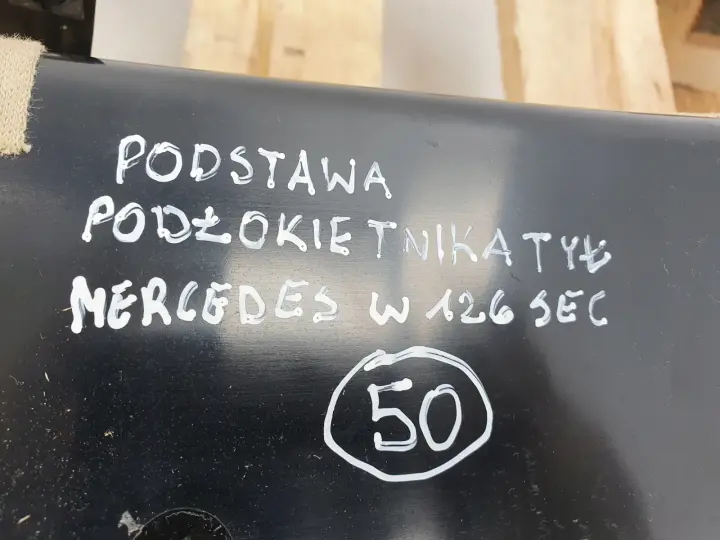 PODSTAWA
PODŁOKIETNIKA TYŁ
MERCEDES W 126 SEC
50